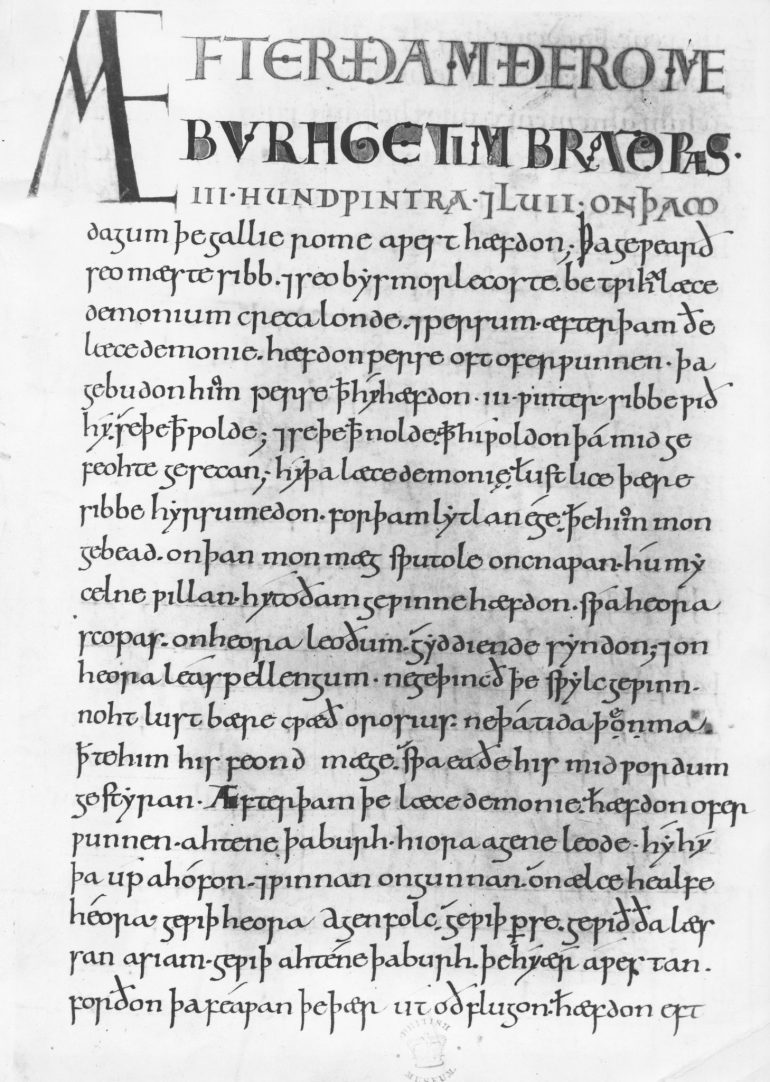 ÆFTER ÐAM ÐE ROME
BURH GETIMBRAÐ ǷÆS·
III·HUND ǷINTRA·⁊ LUII; ON ÞAM
dagum þe gallie rome aƿert hæfdon; Þa geƿearð
seo mæste sibb.⁊ seo bysmorlecoste. betƿih læce
demonium creca londe.⁊ ƿersum. æfter þam ðe
læcedemonie. hæfdon ƿerse oft oferƿunnen· þa
gebudon him ƿerse ꝥ hy hæfdon· iii· ƿinter sibbe ƿið
hy. se þe ꝥ ƿolde; ⁊ se þe ꝥ nolde. ꝥ hi ƿoldon þá mid ge
feohte gesecan; hy þa læcedemonie. lustlice þære
sibbe hyrsumedon. for þam lytlan ége. þe him mon
gebead. on þan mon mæg sƿutole oncnaƿan. hú my
celne ƿillan. hy to ðam geƿinne hæfdon. sƿá heora
scopas. on heora leoðum. gyddiende syndon; ⁊ on
heora leásspellengum· ne geþincð þe sƿylc geƿinn·
noht lustbære cƿæð orosius. ne þá tida þon ma
ꝥte him his feond mæge. sƿa eaðe his mid ƿordum
gestyran· Æfter þam þe læcedemonie. hæfdon ofer
ƿunnen· ahtene þa burh· hiora agene leode· hy hy
þa up ahófon. ⁊ ƿinnan ongunnan. on ælce healfe
heora· geƿiþ heora agen folc. ge ƿiþ ƿerse. ge ƿið ða læs
san asiam. ge ƿiþ ahténe þa burh. þe hy ær aƿestan.
forðon þa feáƿan þe þær ut oðflugon. hæfdon eft